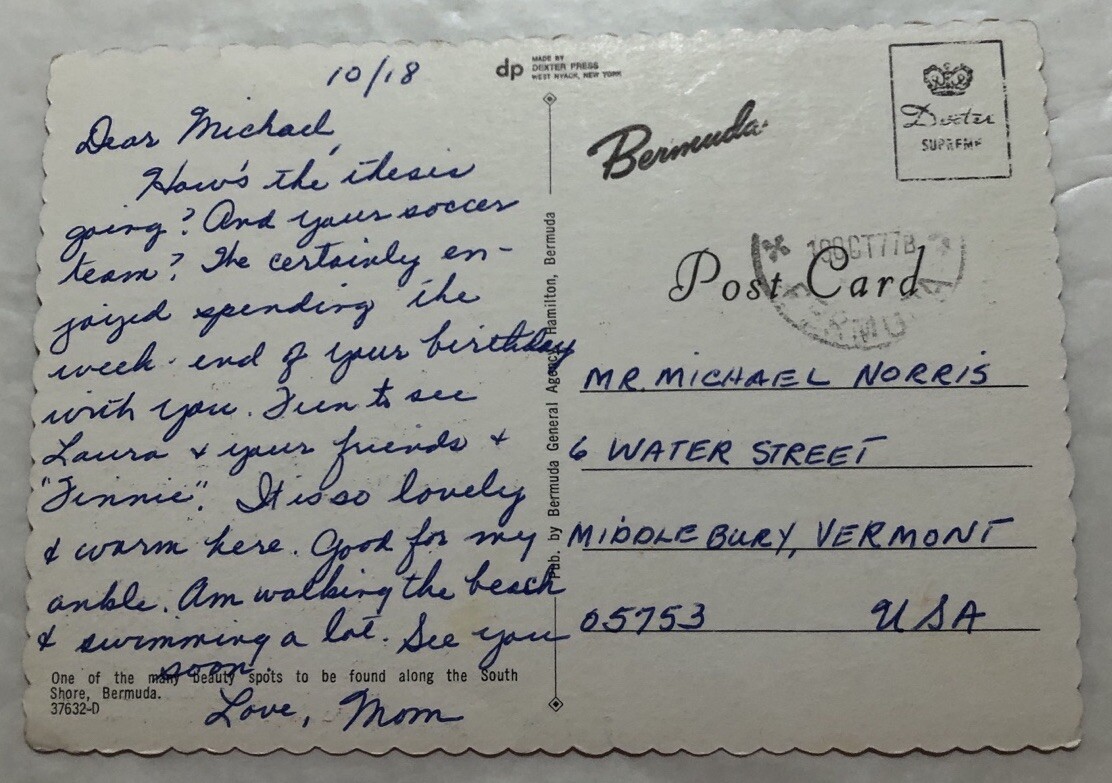 10/18
Dear Michael,
How's the thesis
going? And your soccer
team? We certainly en-
joyed spending the
week-end of your birthday
with you. Fun to see
Laura & your friends &
"Finnie". It is so lovely
& warm here. Good for my
ankle. Am walking the beach
& swimming a lot. See you
soon.
Love, Mom
One of the many beauty spots to be found along the South
Shore, Bermuda.
37632-D
dp
MADE BY
DEXTER PRESS
WEST NYACK, NEW YORK
Pub. by Bermuda General Agency, Hamilton, Bermuda
Bermuda
Dexter
SUPREME
Post Card
OCT 77
BERMUDA
MR. MICHAEL NORRIS
6 WATER STREET
MIDDLEBURY, VERMONT
05753 USA